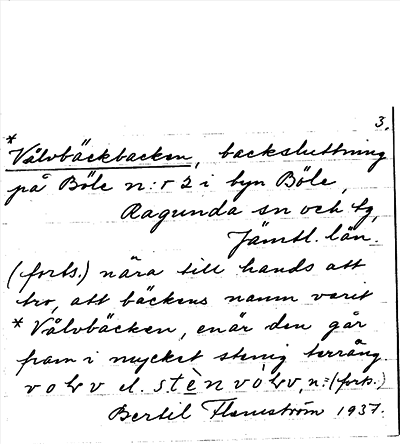 3.
*
Vålvbäckbacken, backsluttning
på Böle n:r 2 i byn Böle,
Ragunda sn och tg,
Jämtl. län.
(forts.) nära till hands att
tro, att bäckens namn varit
* Vålvbäcken, enär den går
fram i mycket stenig terräng.
(forts.)
Bertel Flemström 1937.